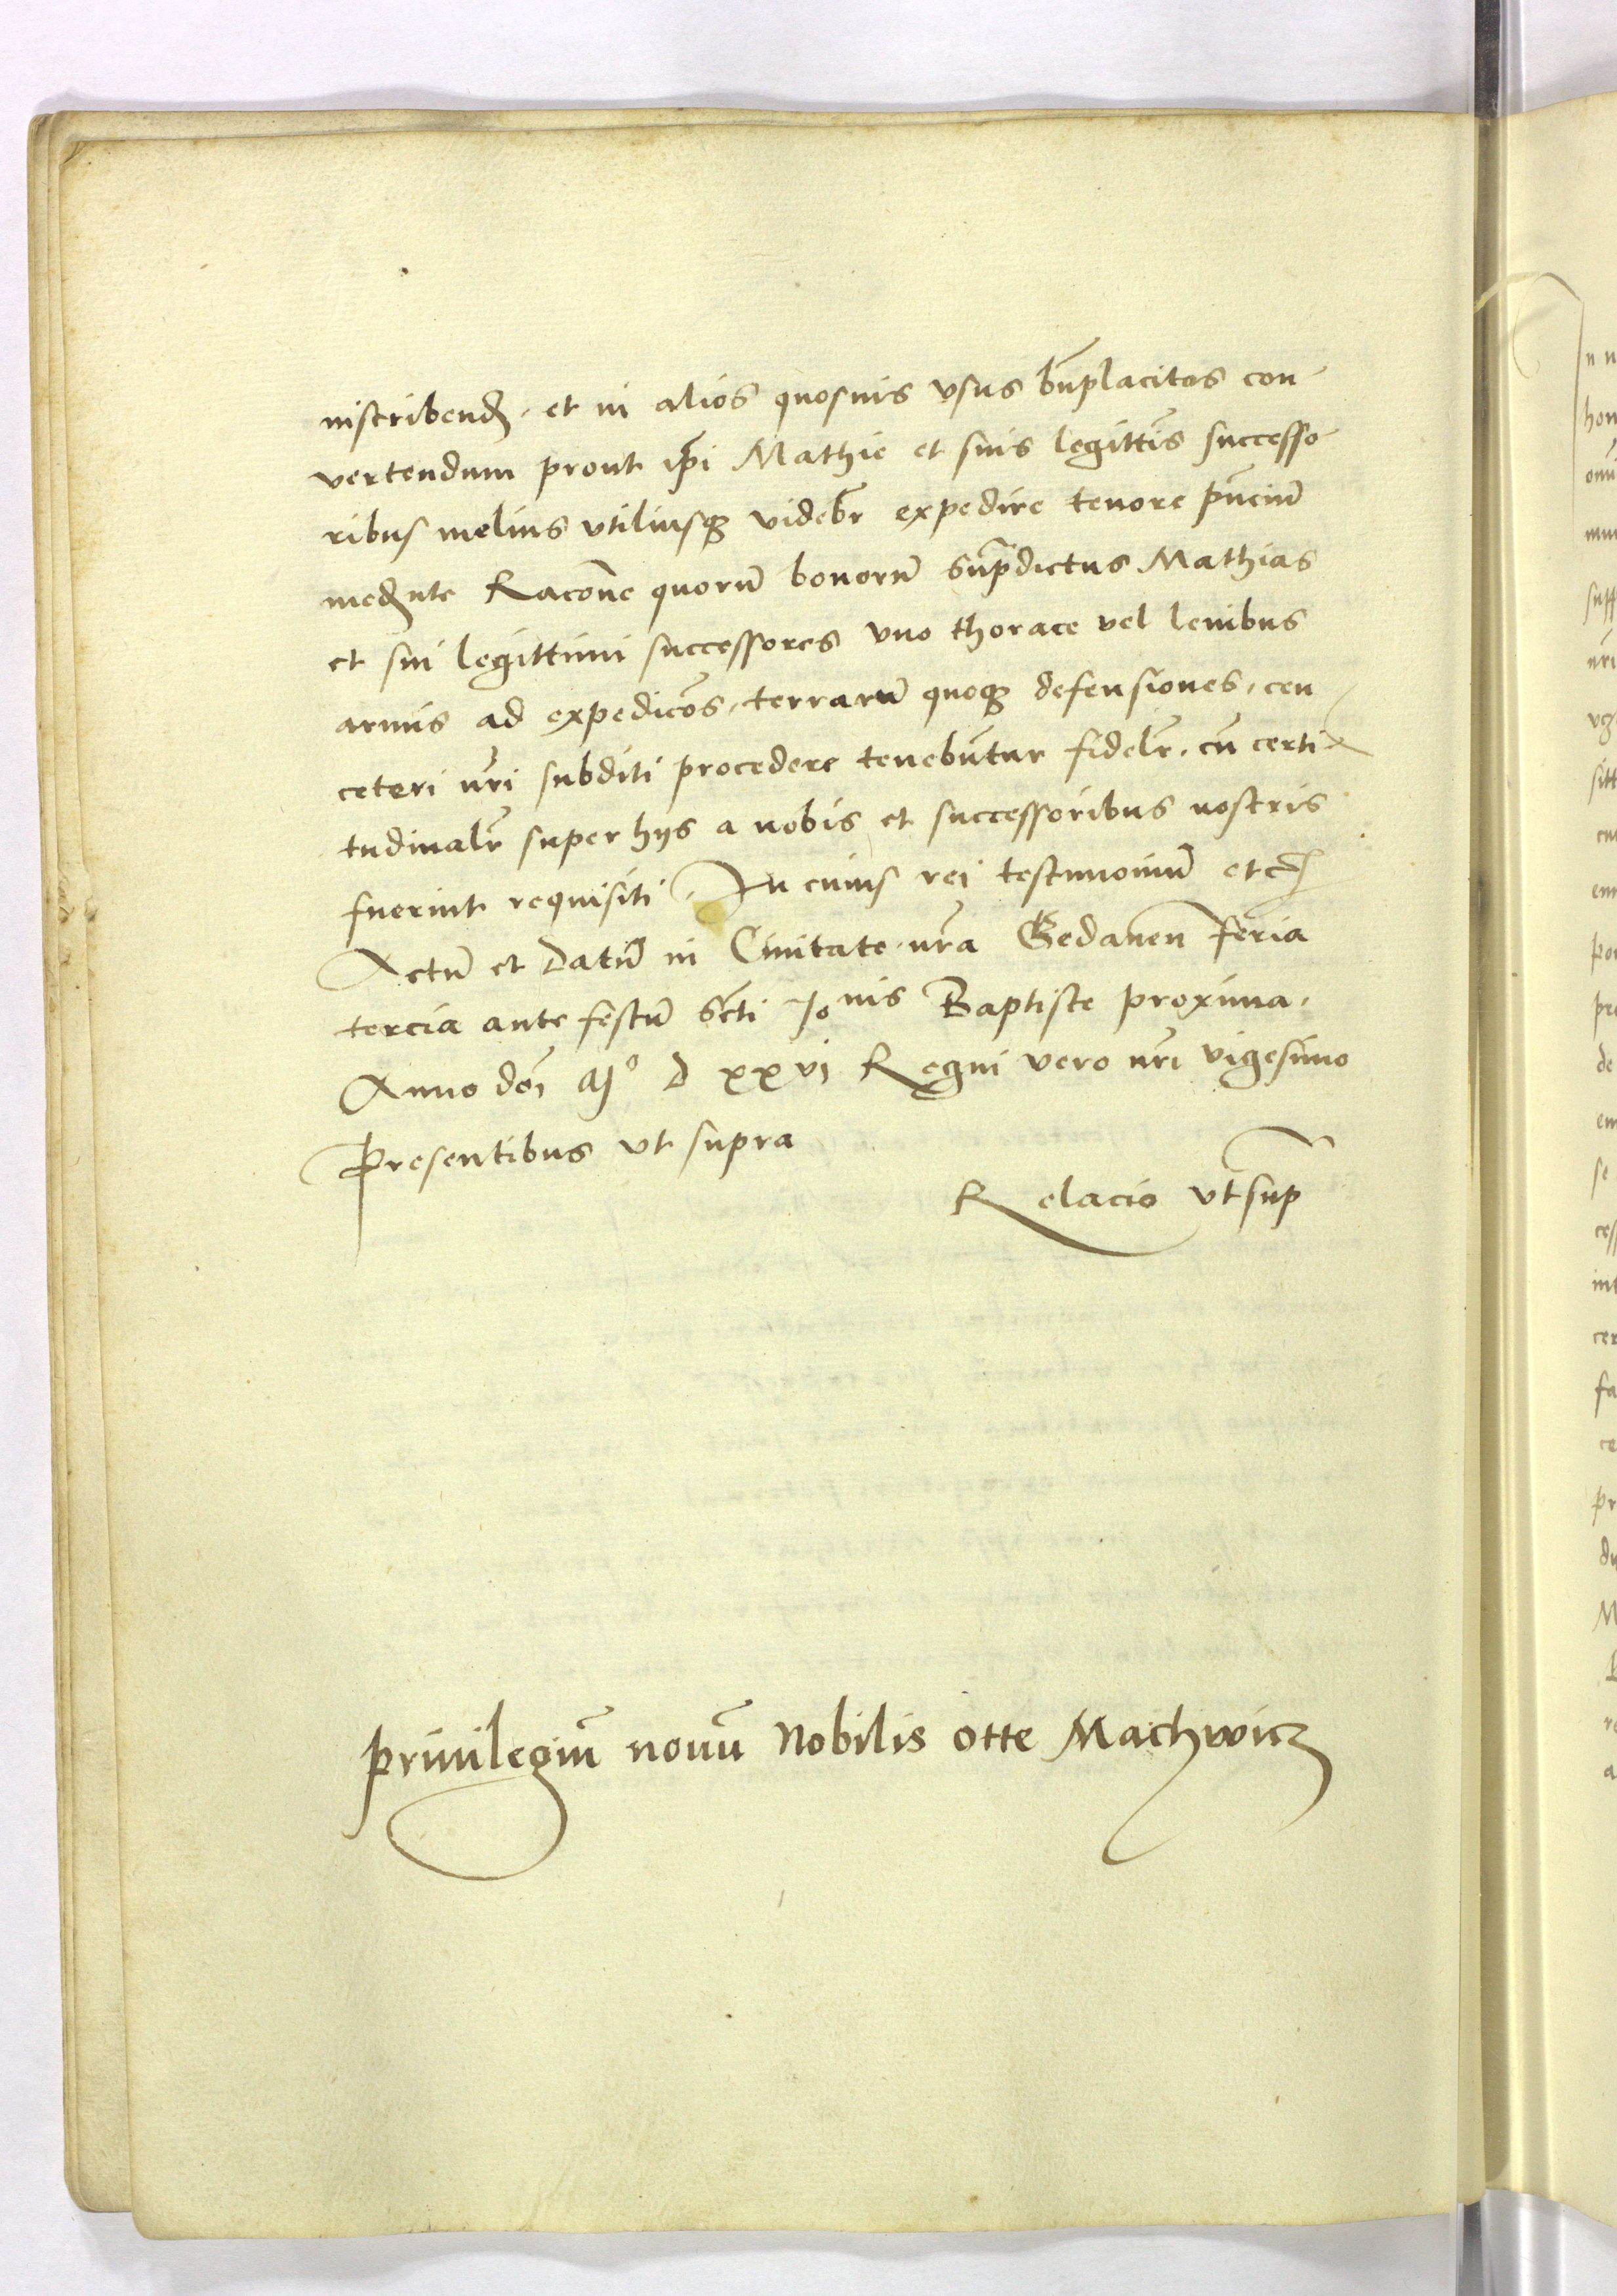 inscribend. et in alios quosuis vsus bnplacitos con-
vertendum prout ipi Mathie et suis legittis successo-
ribus melius vtiliusq videbr expedire tenore pnciu
mednte Racone quoru bonoru supradictus Mathias
et sui legittimi successores vno thorace vel leuibus
armis ad expedicos, terraru quoq defensiones, ceu
ceteri nri subditi procedere tenebutur fidelr, cu certi-
tudinalr super hys a nobis et successoribus nostris
fuerint requisiti, In cuius rei testimoniu etc
Actu et datu in Ciuitate nra Gedanen feria
tercia ante festu scti Jonis Baptiste proxima.
Anno doi Mo D xxvi Regni vero nri vigesimo
Presentibus vt supra
Relacio vt sup
priuilegiu nouu Nobilis otte Machwicz